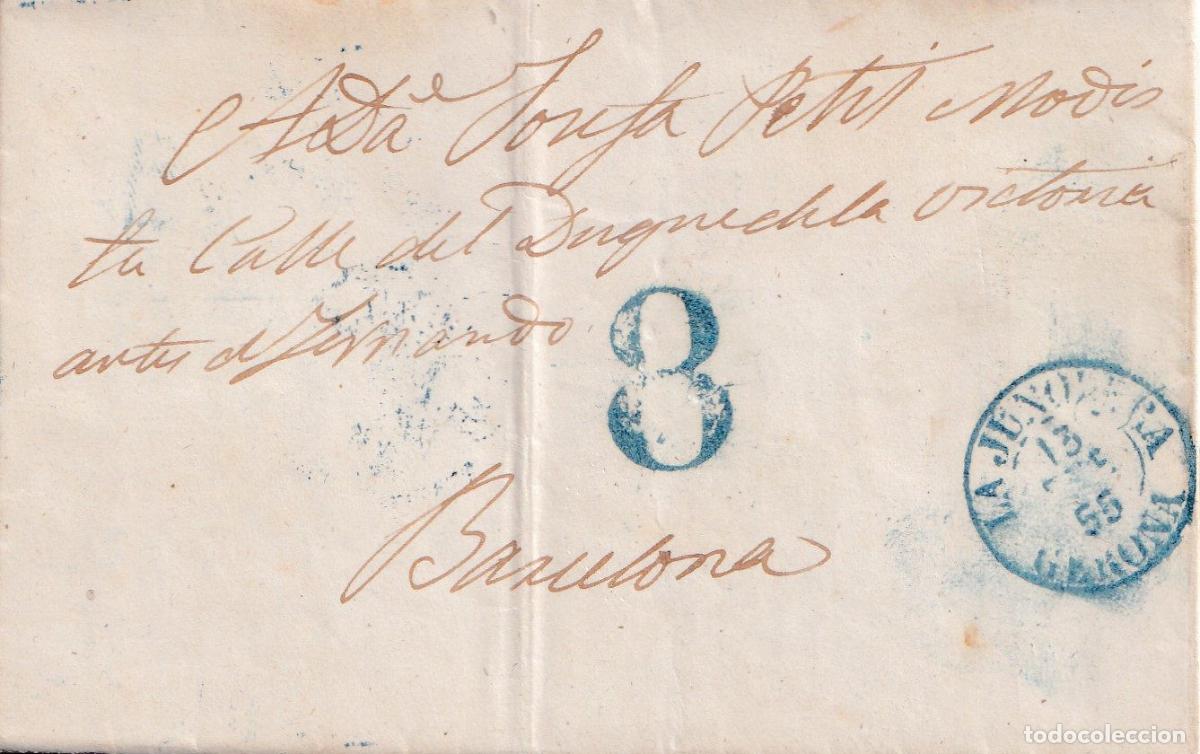 A Dª Josefa Petit Modis
ta Calle del Duque dela victoria
antes de Fernando
8
LA JUNQUERA
13
55
GERONA
Barcelona
todocoleccion